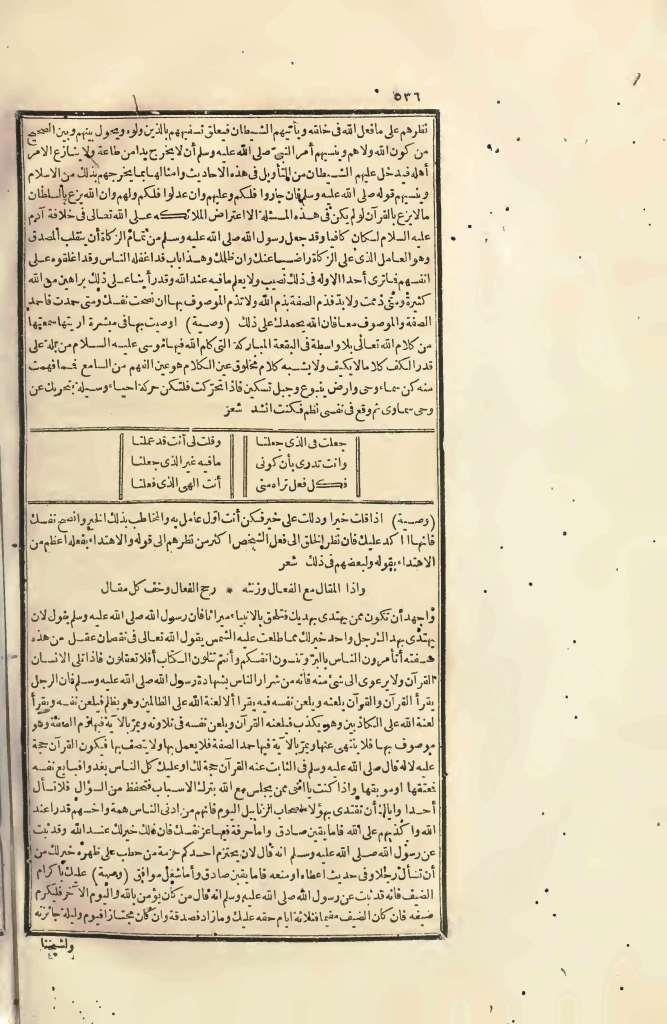 ٥٣٦
نظرهم على ما فعل الله فى خلقه ويأتيهم الشيطان فيعلق تسفيههم بالذين ولوه ويحول بينهم وبين الصحيح
من كون الله ولاهم وينسيهم أمر النبى صلى الله عليه وسلم أن لا يخرج يدا من طاعة ولا ينازع الامر
أهله فيدخل عليهم الشيطان من التأويل فى هذه الاحاديث وامثالها بما يخرجهم بذلك من الاسلام
وينسيهم قوله صلى الله عليه وسلم فان جاروا فلكم وعليهم وان عدلوا فلكم ولهم وان الله يزع بالسلطان
ما لا يزع بالقرآن لو لم يكن فى هذه المسئلة الا اعتراض الملائكة على الله تعالى فى خلافة آدم
عليه السلام لكان كافيا وقد جعل رسول الله صلى الله عليه وسلم من تمام الزكاة أن ينقلب المصدق
وهو العامل الذى على الزكاة راضيا عنك وان ظلمك وهذا باب قد اغفله الناس وقد اغلقوه على
انفسهم فما ترى أحدا الا وله فى ذلك نصيب ولا يعلم ما فيه عند الله وقد رأينا على ذلك براهين من الله
كثيرة ومتى ذممت ولا بد فذم الصفة بذم الله ولا تذم الموصوف بها ان نصحت نفسك ومتى حمدت فاحمد
الصفة والموصوف معا فان الله يحمدك على ذلك (وصية) اوصيت بها فى مبشرة اريتها سمعتها
من كلام الله تعالى بلا واسطة فى البقعة المباركة التى كلم الله فيها موسى عليه السلام من بلة على
قدر الكف كلاما لا يكيف ولا يشبه كلام مخلوق عين الكلام هو عين الفهم من السامع فمما فهمت
منه كن سماء وحى وارض ينبوع وجبل تسكين فاذا تحركت فلتكن حركة احياء وسيلة بتحريك عن
وحى سماوى ثم وقع فى نفسى نظم فكنت انشد شعر
جعلت فى الذى جعلتا وقلت لى أنت قد عملتا
وانت تدرى بأن كونى ما فيه غير الذى جعلتا
فكل فعل تراه منى أنت الهى الذى فعلتا
(وصية) اذا قلت خيرا ودللت على خير فكن أنت اول عامل به والمخاطب بذلك الخير وانصح نفسك
فانها آكد عليك فان نظر الخلق الى فعل الشخص اكثر من نظرهم الى قوله والاهتداء بفعله اعظم من
الاهتداء بقوله ولبعضهم فى ذلك شعر
واذا المقال مع الفعال وزنته * رجح الفعال وخف كل مقال
واجهد أن تكون ممن يهتدى بهديك فتلحق بالانبياء ميراثا فان رسول الله صلى الله عليه وسلم يقول لان
يهتدى بهداك رجل واحد خير لك مما طلعت عليه الشمس يقول الله تعالى فى نقصان عقل من هذه
صفته أتأمرون الناس بالبر وتنسون انفسكم وأنتم تتلون الكتاب أفلا تعقلون فاذا تلى الانسان
القرآن ولا يرعوى الى شئ منه فانه من شرار الناس بشهادة رسول الله صلى الله عليه وسلم فان الرجل
يقرأ القرآن والقرآن يلعنه ويلعن نفسه فيه يقرأ ألا لعنة الله على الظالمين وهو يظلم فيلعن نفسه ويقرأ
لعنة الله على الكاذبين وهو يكذب فيلعنه القرآن ويلعن نفسه فى تلاوته ويمر بالآية فيها ذم الصفة وهو
موصوف بها فلا ينتهى عنها ويمر بالآية فيها حمد الصفة فلا يعمل بها ولا يتصف بها فيكون القرآن حجة
عليه لا له قال صلى الله عليه وسلم فى الثابت عنه القرآن حجة لك او عليك كل الناس يغدو فبايع نفسه
فمعتقها او موبقها واذا كنت يا اخى ممن يجلس مع الله بترك الاسباب فتحفظ من السؤال فلا تسأل
أحدا واياك أن تقتدى بهؤلاء اصحاب الزنابيل اليوم فانهم من ادنى الناس همة واخسهم قدرا عند
الله واكذبهم على الله فاما يقين صادق واما حرفة فيها عز نفسك فان ذلك خير لك عند الله وقد ثبت
عن رسول الله صلى الله عليه وسلم انه قال لان يحتزم احدكم حزمة من حطب على ظهره خير له من
أن يسأل رجلا وفى حديث اعطاه او منعه فاما يقين صادق واما شغل موافق (وصية) عليك باكرام
الضيف فانه قد ثبت عن رسول الله صلى الله عليه وسلم انه قال من كان يؤمن بالله واليوم الآخر فليكرم
ضيفه فان كان الضيف مقيما فثلاثة ايام حقه عليك وما زاد فصدقة وان كان مجتازا فيوم وليلة جائزته
ولشيخنا